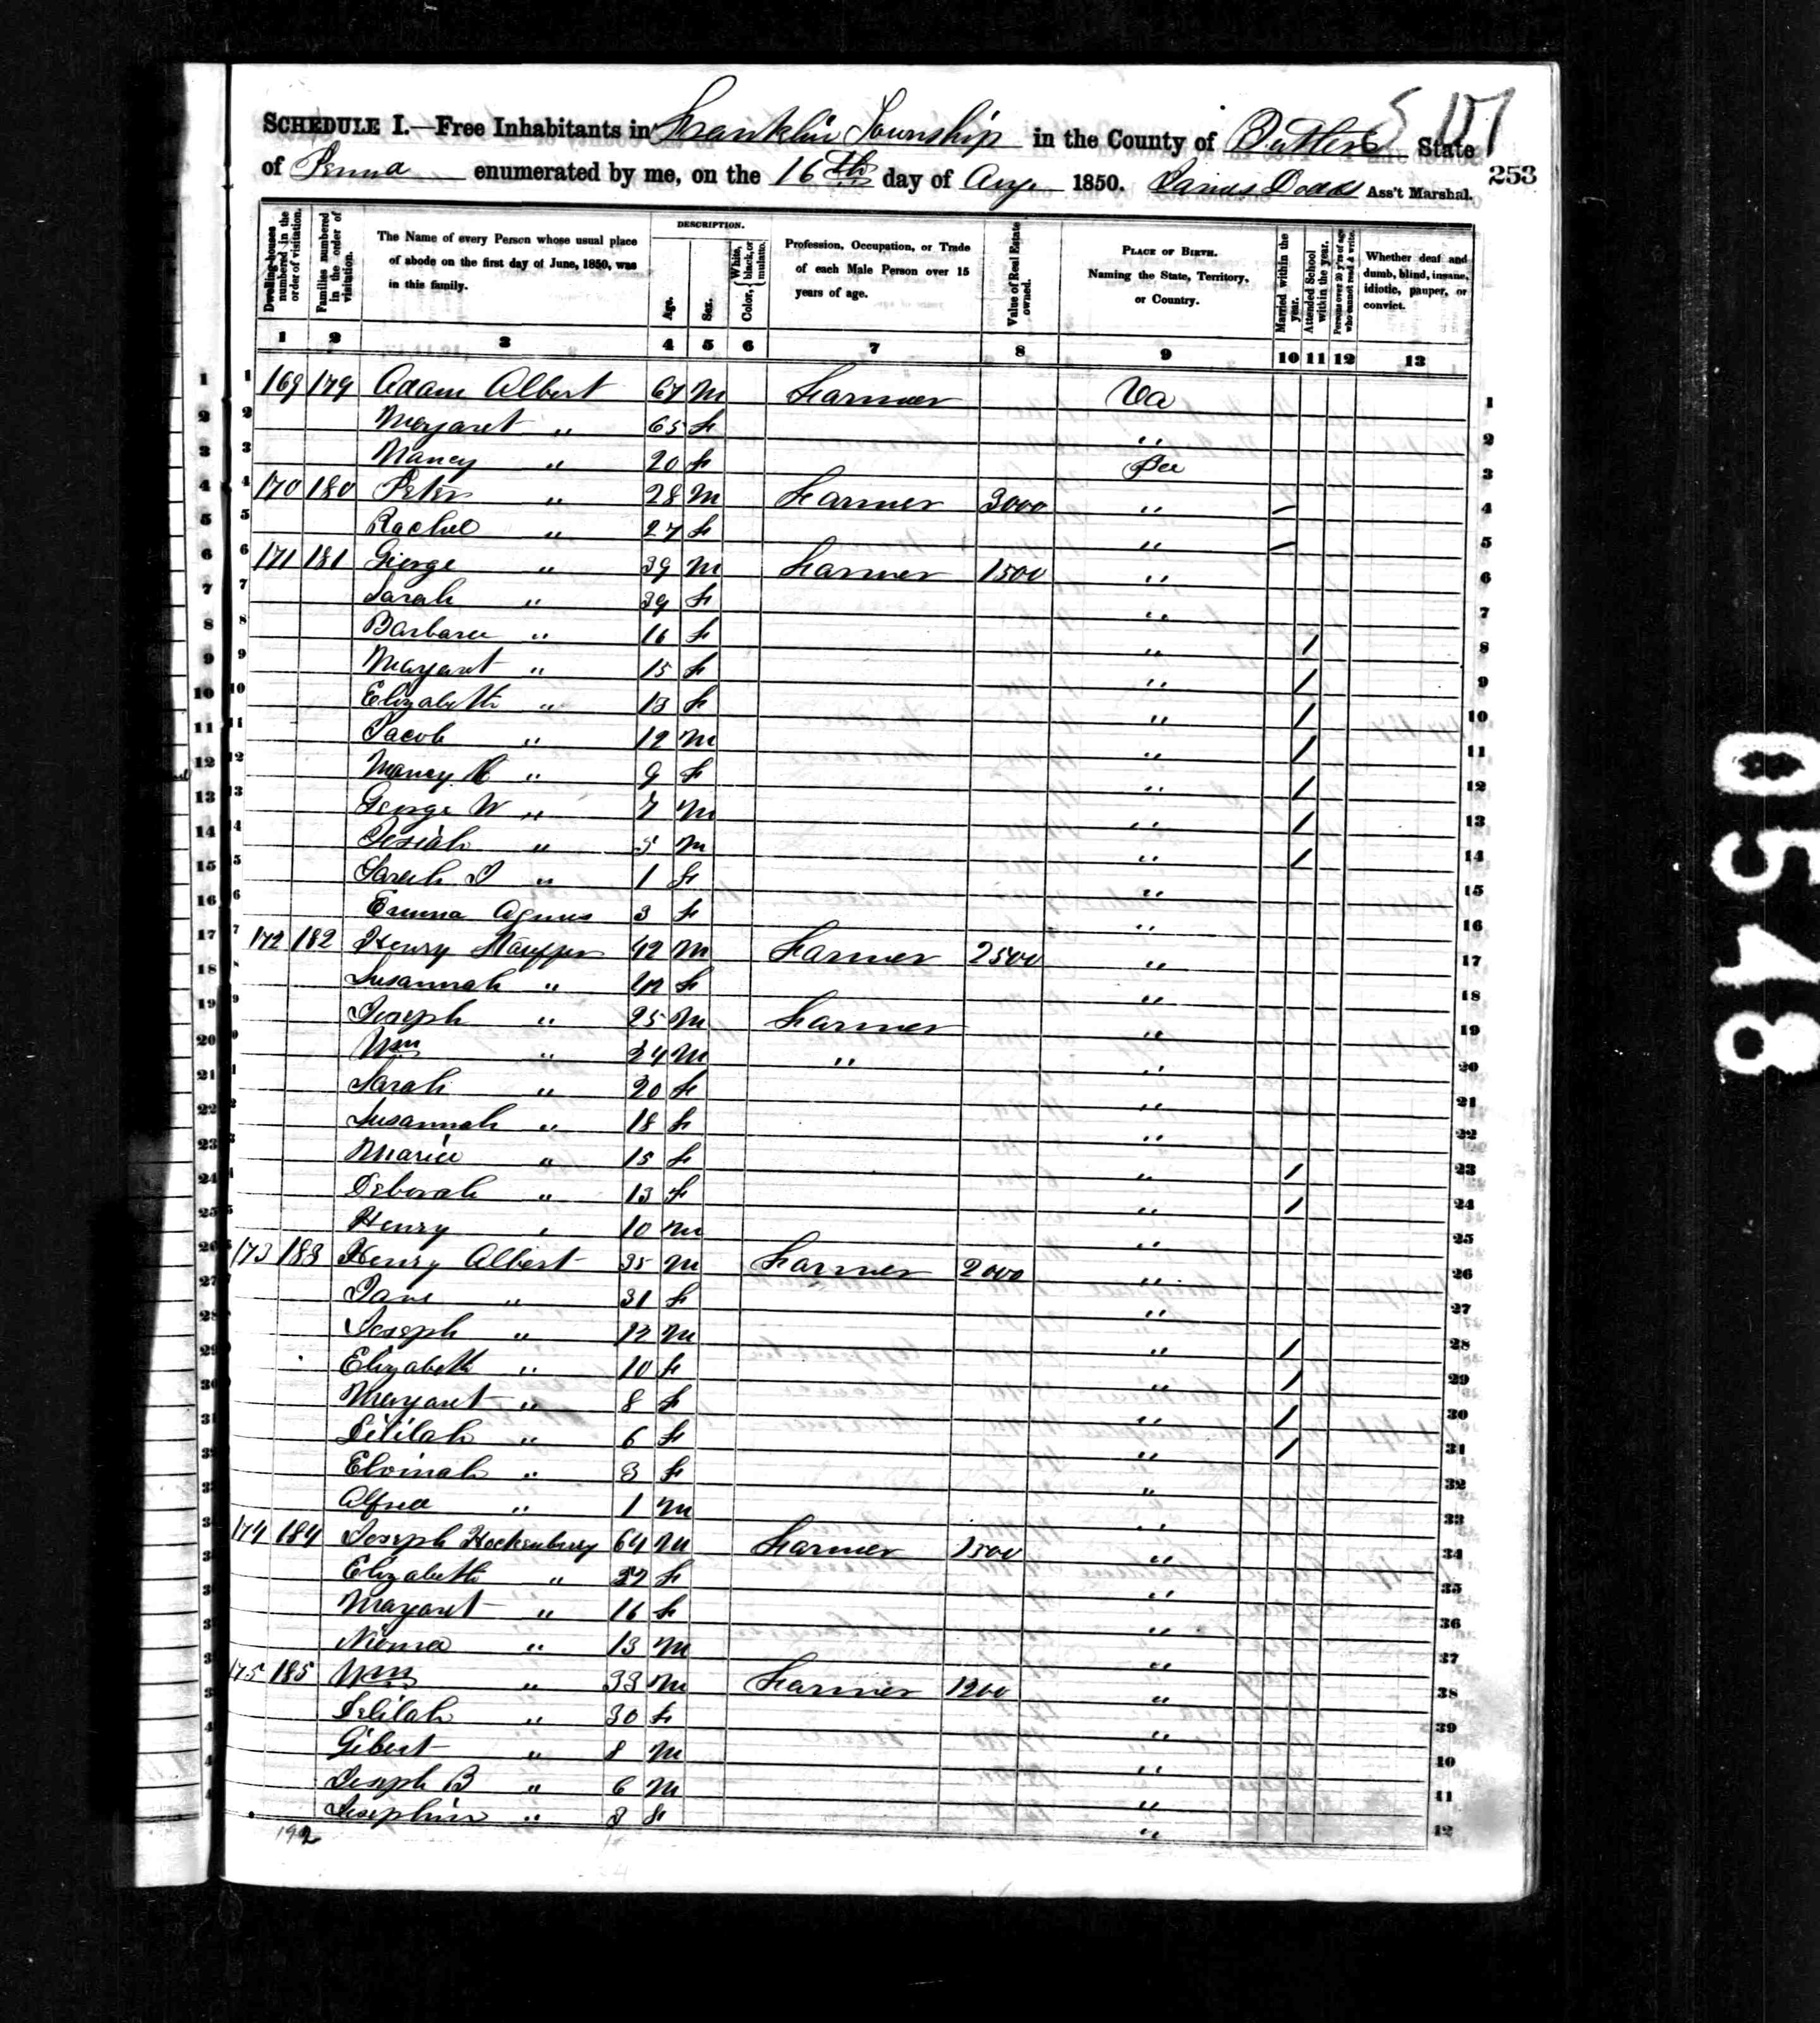 517
SCHEDULE I.—Free Inhabitants in Franklin Township in the County of Butler State
of Penna enumerated by me, on the 16th day of Aug 1850. Dodds Ass't Marshal. 253
Dwelling-houses numbered in the order of visitation.
Families numbered in the order of visitation.
The Name of every Person whose usual place of abode on the first day of June, 1850, was in this family.
DESCRIPTION.
Age.
Sex.
Color, White, black, or mulatto.
Profession, Occupation, or Trade of each Male Person over 15 years of age.
Value of Real Estate owned.
PLACE OF BIRTH. Naming the State, Territory, or Country.
Married within the year.
Attended School within the year.
Persons over 20 y'rs of age who cannot read & write.
Whether deaf and dumb, blind, insane, idiotic, pauper, or convict.
1 2 3 4 5 6 7 8 9 10 11 12 13
1 169 179 Adam Albert 67 M Farmer Va 1
2 Margaret " 65 F " 2
3 Nancy " 20 F Pa 3
4 170 180 Peter " 28 M Farmer 3000 " / 4
5 Rachel " 27 F " / 5
6 171 181 George " 39 M Farmer 1500 " 6
7 Sarah " 39 F " 7
8 Barbara " 16 F " / 8
9 Margaret " 15 F " / 9
10 Elizabeth " 13 F " / 10
11 Jacob " 12 M " / 11
12 Nancy " 9 F " / 12
13 George W " 7 M " / 13
14 Josiah " 5 M " / 14
15 Sarah J " 1 F " 15
16 Emma Agnes 3 F " 16
17 172 182 Henry Stauffer 42 M Farmer 2500 " 17
18 Susannah " F " 18
19 Joseph " 25 M Farmer " 19
20 Wm " 24 M " " 20
21 Sarah " 20 F " 21
22 Susannah " 18 F " 22
23 Maria " 15 F " / 23
24 Deborah " 13 F " / 24
25 Henry " 10 M " 25
26 173 183 Henry Albert 35 M Farmer 2000 " 26
27 Jane " 31 F " 27
28 Joseph " 12 M " / 28
29 Elizabeth " 10 F " / 29
30 Margaret " 8 F " / 30
31 Delilah " 6 F " / 31
Elvinah " 3 F " 32
Alfred " 1 M " 33
174 184 Joseph Hockenbury 64 M Farmer 1500 " 34
Elizabeth " F " 35
Margaret " 16 F " 36
" 13 M " 37
175 185 Wm " 33 M Farmer 1200 " 38
Delilah " 30 F " 39
Gibert " 8 M " 10
Joseph B " 6 M " 11
Josephine " 3 F " 12
192
0548